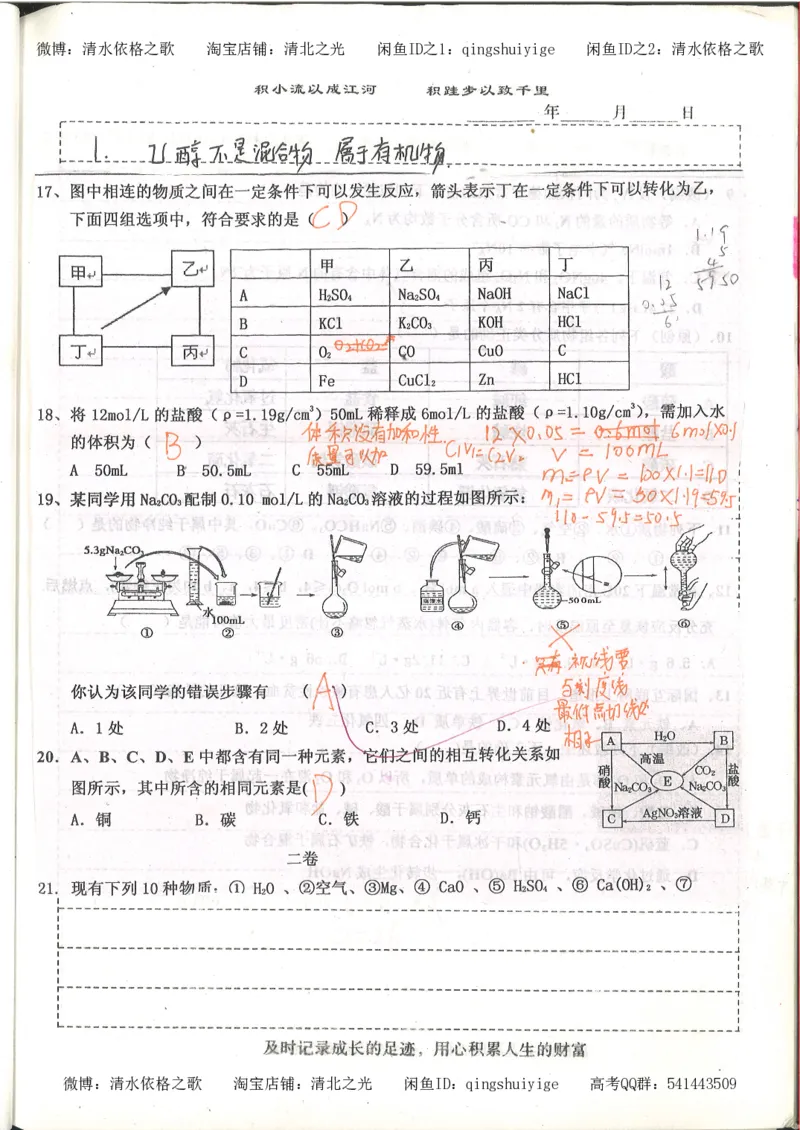 微博：清水依格之歌 淘宝店铺：清北之光 闲鱼ID之1：qingshuiyige 闲鱼ID之2：清水依格之歌
积小流以成江河 积跬步以致千里
年 月 日
1. 乙醇不是混合物 属于有机物
17、图中相连的物质之间在一定条件下可以发生反应，箭头表示丁在一定条件下可以转化为乙，
下面四组选项中，符合要求的是（ CD ）
甲 乙
丁 丙
甲 乙 丙 丁
A H₂SO₄ Na₂SO₄ NaOH NaCl
B KCl K₂CO₃ KOH HCl
C O₂ CO CuO C
D Fe CuCl₂ Zn HCl
18、将 12mol/L 的盐酸（ρ=1.19g/cm³）50mL 稀释成 6mol/L 的盐酸（ρ=1.10g/cm³），需加入水
的体积为（ B ）
体积没有加和性
质量可以加
C₁V₁=C₂V₂
12×0.05=0.6mol 6mol×0.1
V=100mL
A 50mL B 50.5mL C 55mL D 59.5ml
m=ρV=100×1.1=110
m₁=ρV=50×1.19=59.5
110-59.5=50.5
19、某同学用 Na₂CO₃ 配制 0.10 mol/L 的 Na₂CO₃ 溶液的过程如图所示：
5.3gNa₂CO₃
水 100mL
500mL
① ② ③ ④ ⑤ ⑥
你认为该同学的错误步骤有 （ A ）
只有视线要
与刻度线
最低点切线处
相平
A．1 处 B．2 处 C．3 处 D．4 处
20、A、B、C、D、E 中都含有同一种元素，它们之间的相互转化关系如
图所示，其中所含的相同元素是( D )
A．铜 B．碳 C．铁 D．钙
A H₂O B
硝酸 高温 CO₂ 盐酸
Na₂CO₃ E Na₂CO₃
C AgNO₃溶液 D
二卷
21．现有下列 10 种物质：① H₂O 、②空气、③Mg、④ CaO 、⑤ H₂SO₄ 、⑥ Ca(OH)₂ 、⑦
及时记录成长的足迹，用心积累人生的财富
微博：清水依格之歌 淘宝店铺：清北之光 闲鱼ID：qingshuiyige 高考QQ群：541443509